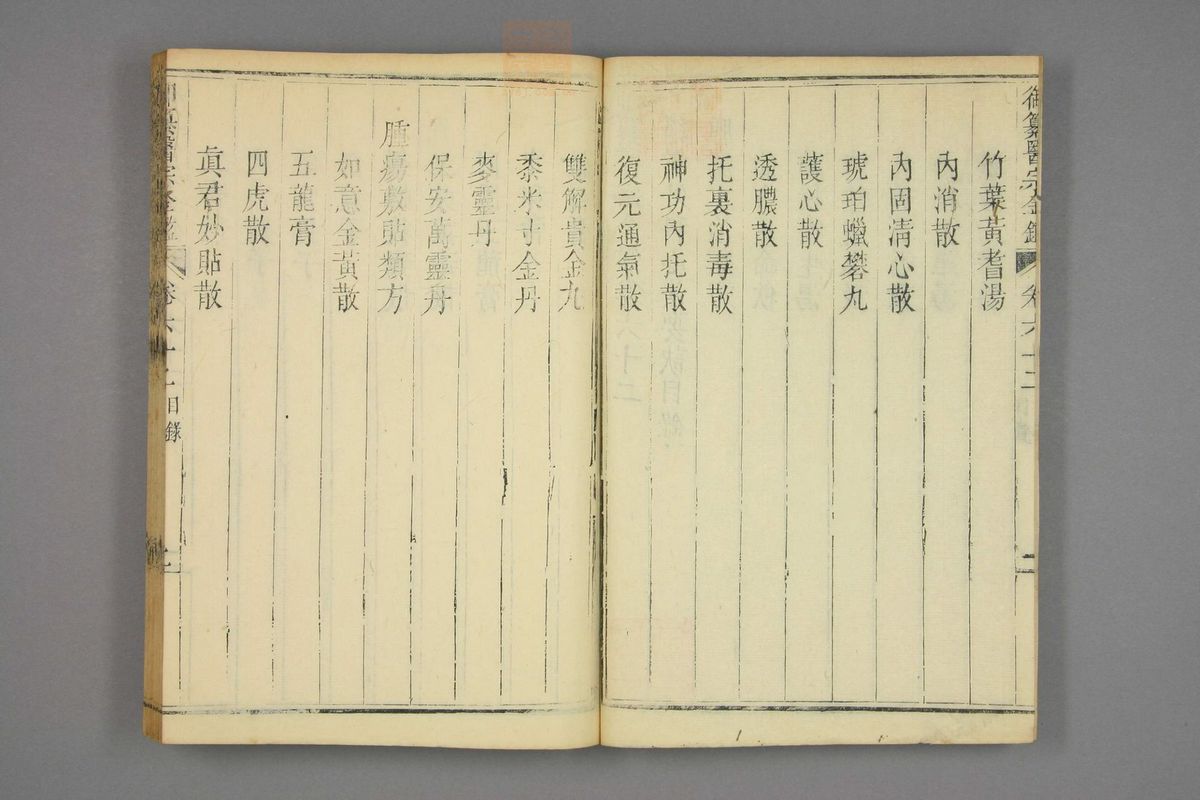 御纂醫宗金鑑 卷六十二
竹葉黃耆湯
內消散
內固清心散
琥珀蠟礬丸
護心散
透膿散
托裏消毒散
神功內托散
復元通氣散
雙解貴金丸
黍米寸金丹
麥靈丹
保安萬靈丹
腫瘍敷貼類方
如意金黃散
五龍膏
四虎散
眞君妙貼散
纂醫宗金鑑 卷六十二 目錄